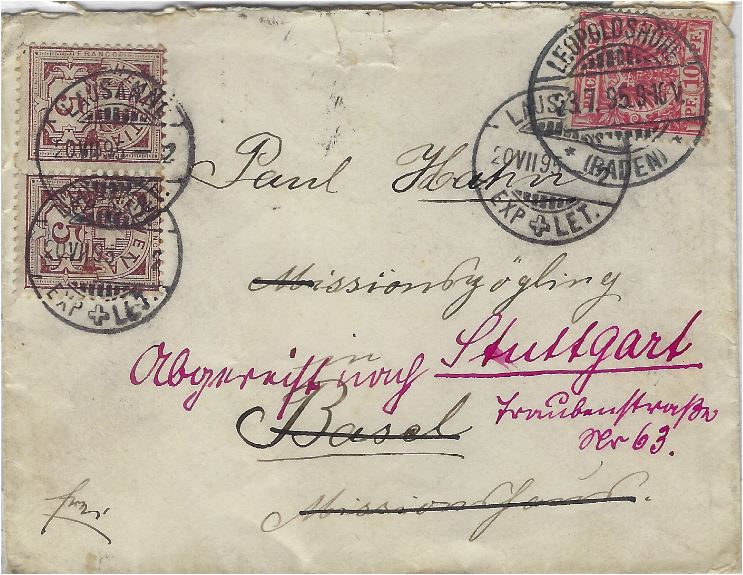 FRANCO
LAUSANNE
20 VII 95
2
EXP + LET.
LAUS
20 VII 95
EXP + LET.
LEOPOLDSHÖHE
23. 7. 95. 9-10 V.
* (BADEN) *
10
Paul Hahn
Missionszögling
in
Abgereist nach Stuttgart
Basel
Traubenstraße
Nr 63.
Missionshaus.